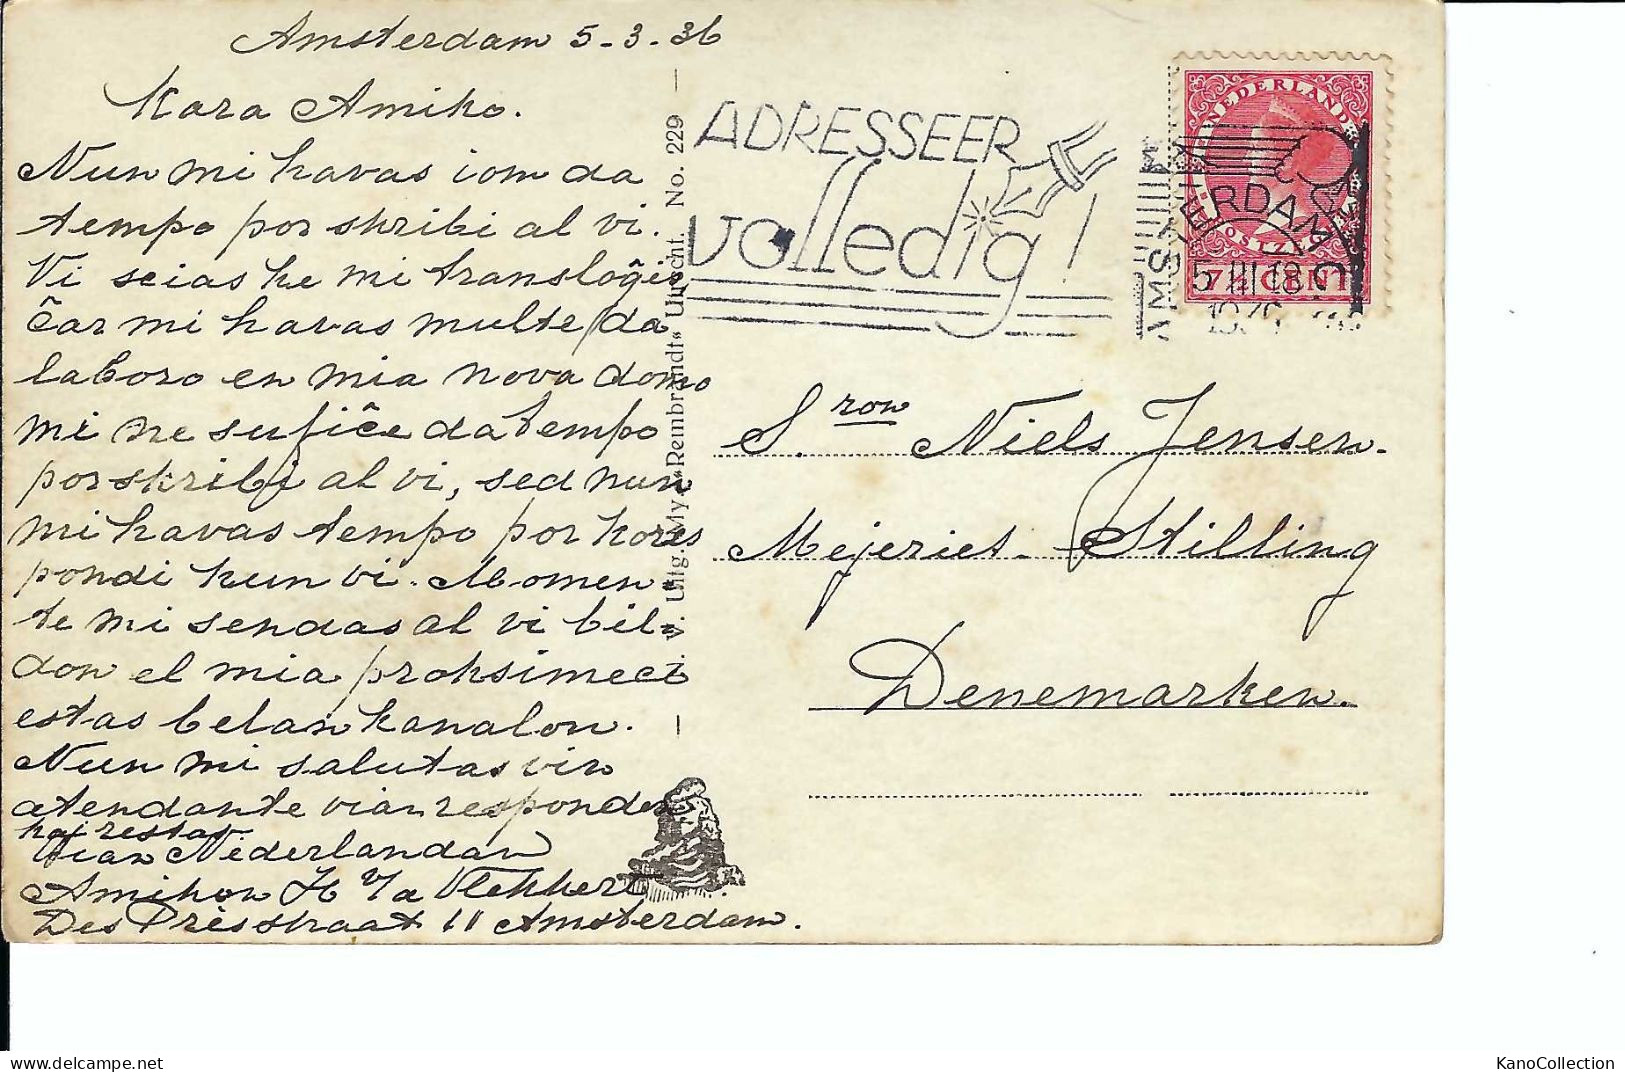 Amsterdam 5-3-36
Kara Amiko.
Nun mi havas iom da
tempo por skribi al vi.
Vi scias ke mi transloĝis
Ĉar mi havas multe da
laboro en mia nova domo
mi ne sufiĉe da tempo
por skribi al vi, sed nun
mi havas tempo por kores
pondi kun vi. Momen-
te mi sendas al vi bil-
don el mia proksimeco
estas belan kanalon.
Nun mi salutas vin
atendante vian respondon
kaj restas
Vian Nederlandan
Amikon H v/a Vlekkert
Des Présstraat 11 Amsterdam.
J. V. Uitg. My «Rembrandt» Utrecht. No. 229
ADRESSEER
volledig!
NEDERLAND
POSTZEGEL
7½ CENT
AMSTERDAM
5 III 18
1936
S.ron Niels Jensen.
Mejeriet - Stilling
Denemarken.
KanoCollection